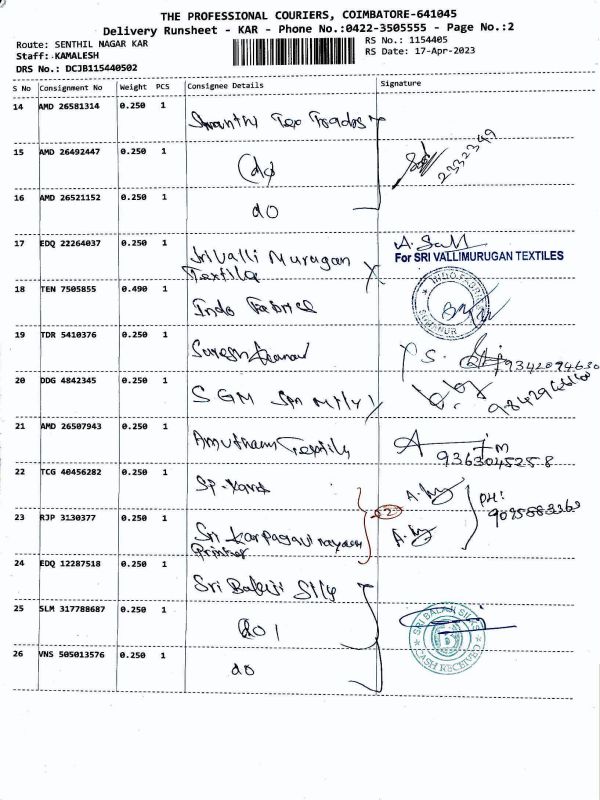 THE PROFESSIONAL COURIERS, COIMBATORE-641045
Delivery Runsheet - KAR - Phone No.:0422-3505555 - Page No.:2
Route: SENTHIL NAGAR KAR
RS No.: 1154405
Staff: KAMALESH
RS Date: 17-Apr-2023
DRS No.: DCJB115440502
S No Consignment No Weight PCS Consignee Details Signature
14 AMD 26581314 0.250 1
Tex Trades
15 AMD 26492447 0.250 1
(do)
2332349
16 AMD 26521152 0.250 1
do
17 EDQ 22264037 0.250 1
Sri Valli Murugan
Textile
For SRI VALLIMURUGAN TEXTILES
18 TEN 7505855 0.490 1
Indo Fabrics
19 TDR 5410376 0.250 1
Suresh
P.S.
20 DDG 4842345 0.250 1
SGM
21 AMD 26507943 0.250 1
Amutham Textile
9363045258
22 TCG 40456282 0.250 1
SP.
2
PH:
23 RJP 3130377 0.250 1
Sri
24 EDQ 12287518 0.250 1
Sri Balaji
25 SLM 317788687 0.250 1
do
SRI BALAJI SILKS
CASH RECEIVED
26 VNS 505013576 0.250 1
do